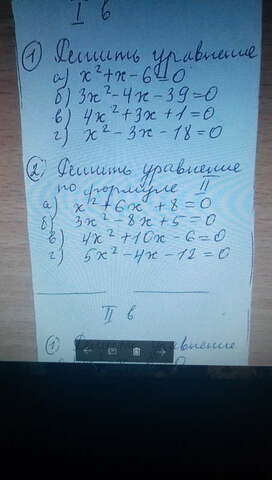 I в
① Решить уравнение
а) x²+x-6=0
б) 3x²-4x-39=0
в) 4x²+3x+1=0
г) x²-3x-18=0
② Решить уравнение
по формуле II
а) x²+6x+8=0
б) 3x²-8x+5=0
в) 4x²+10x-6=0
г) 5x²-4x-12=0
II в
① уравнение